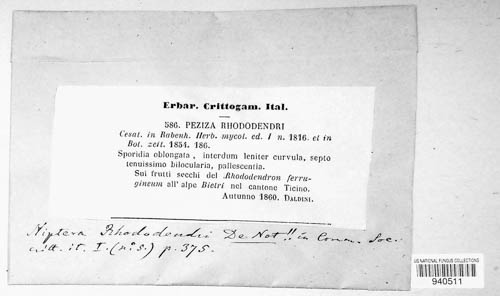 Erbar. Crittogam. Ital.
586. PEZIZA RHODODENDRI
Cesat. in Rabenh. Herb. mycol. ed. I n. 1816. et in
Bot. zeit. 1854. 186.
Sporidia oblongata, interdum leniter curvula, septo
tenuissimo bilocularia, pallescentia.
Sui frutti secchi del Rhododendron ferru-
gineum all' alpe Bietri nel cantone Ticino.
Autunno 1860. DALDINI.
Niptera Rhododendri De Not!! in Comm. Soc.
critt. it. I. (n. 5.) p. 375.
US NATIONAL FUNGUS COLLECTIONS
940511